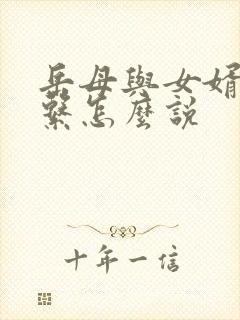 岳母與女婿
繫怎麼說
十年一信